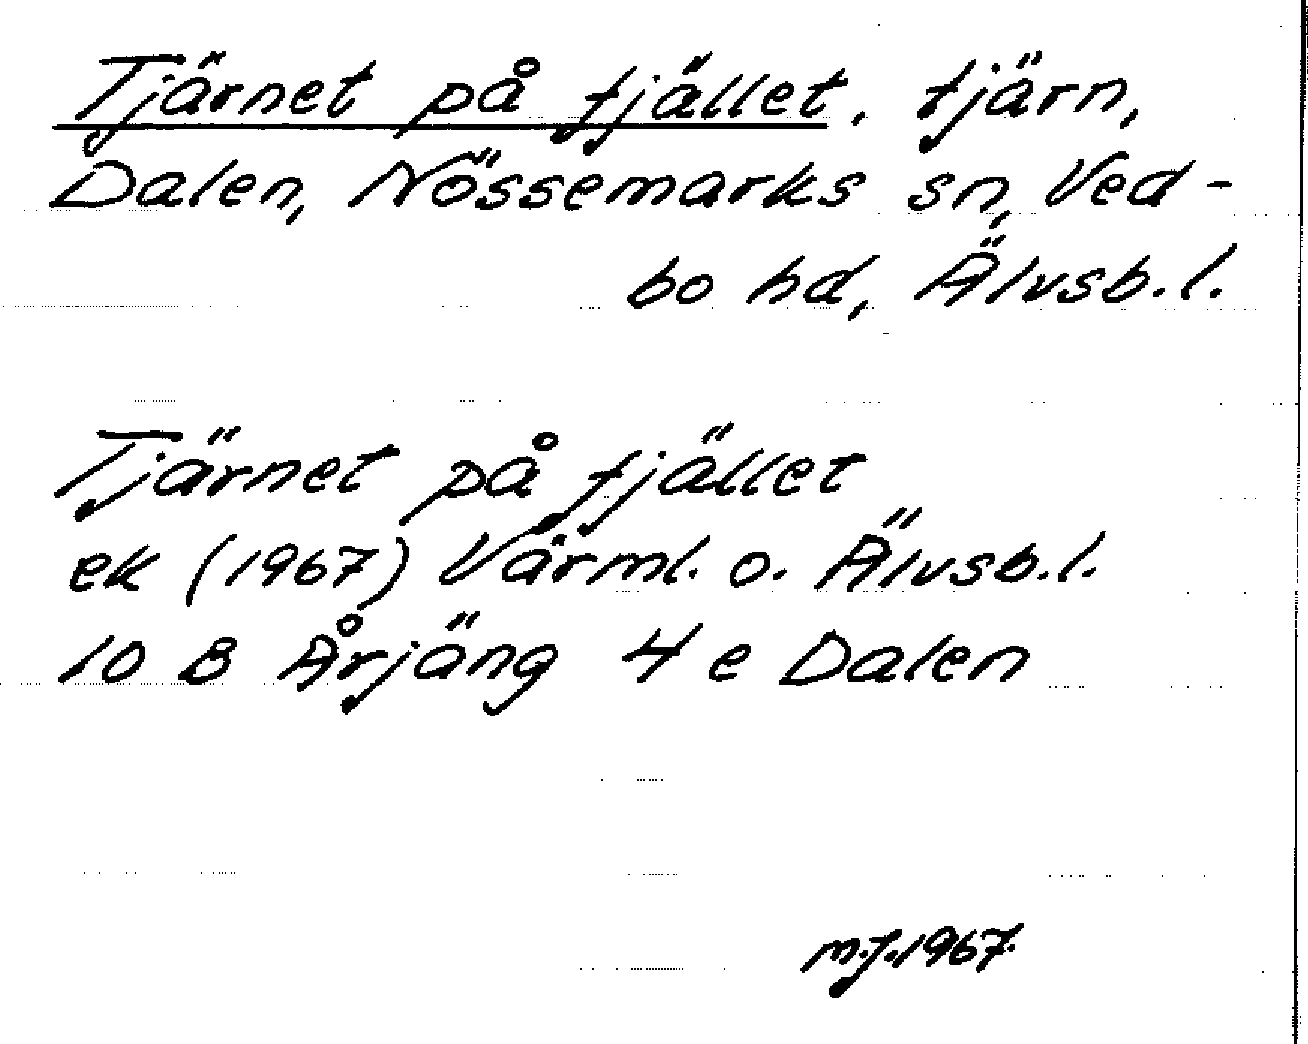 Tjärnet på fjället, tjärn,
Dalen, Nössemarks sn, Ved-
bo hd, Älvsb.l.
Tjärnet på fjället
ek (1967) Värml. o. Älvsb.l.
10 B Årjäng 4 e Dalen
m.j. 1967.